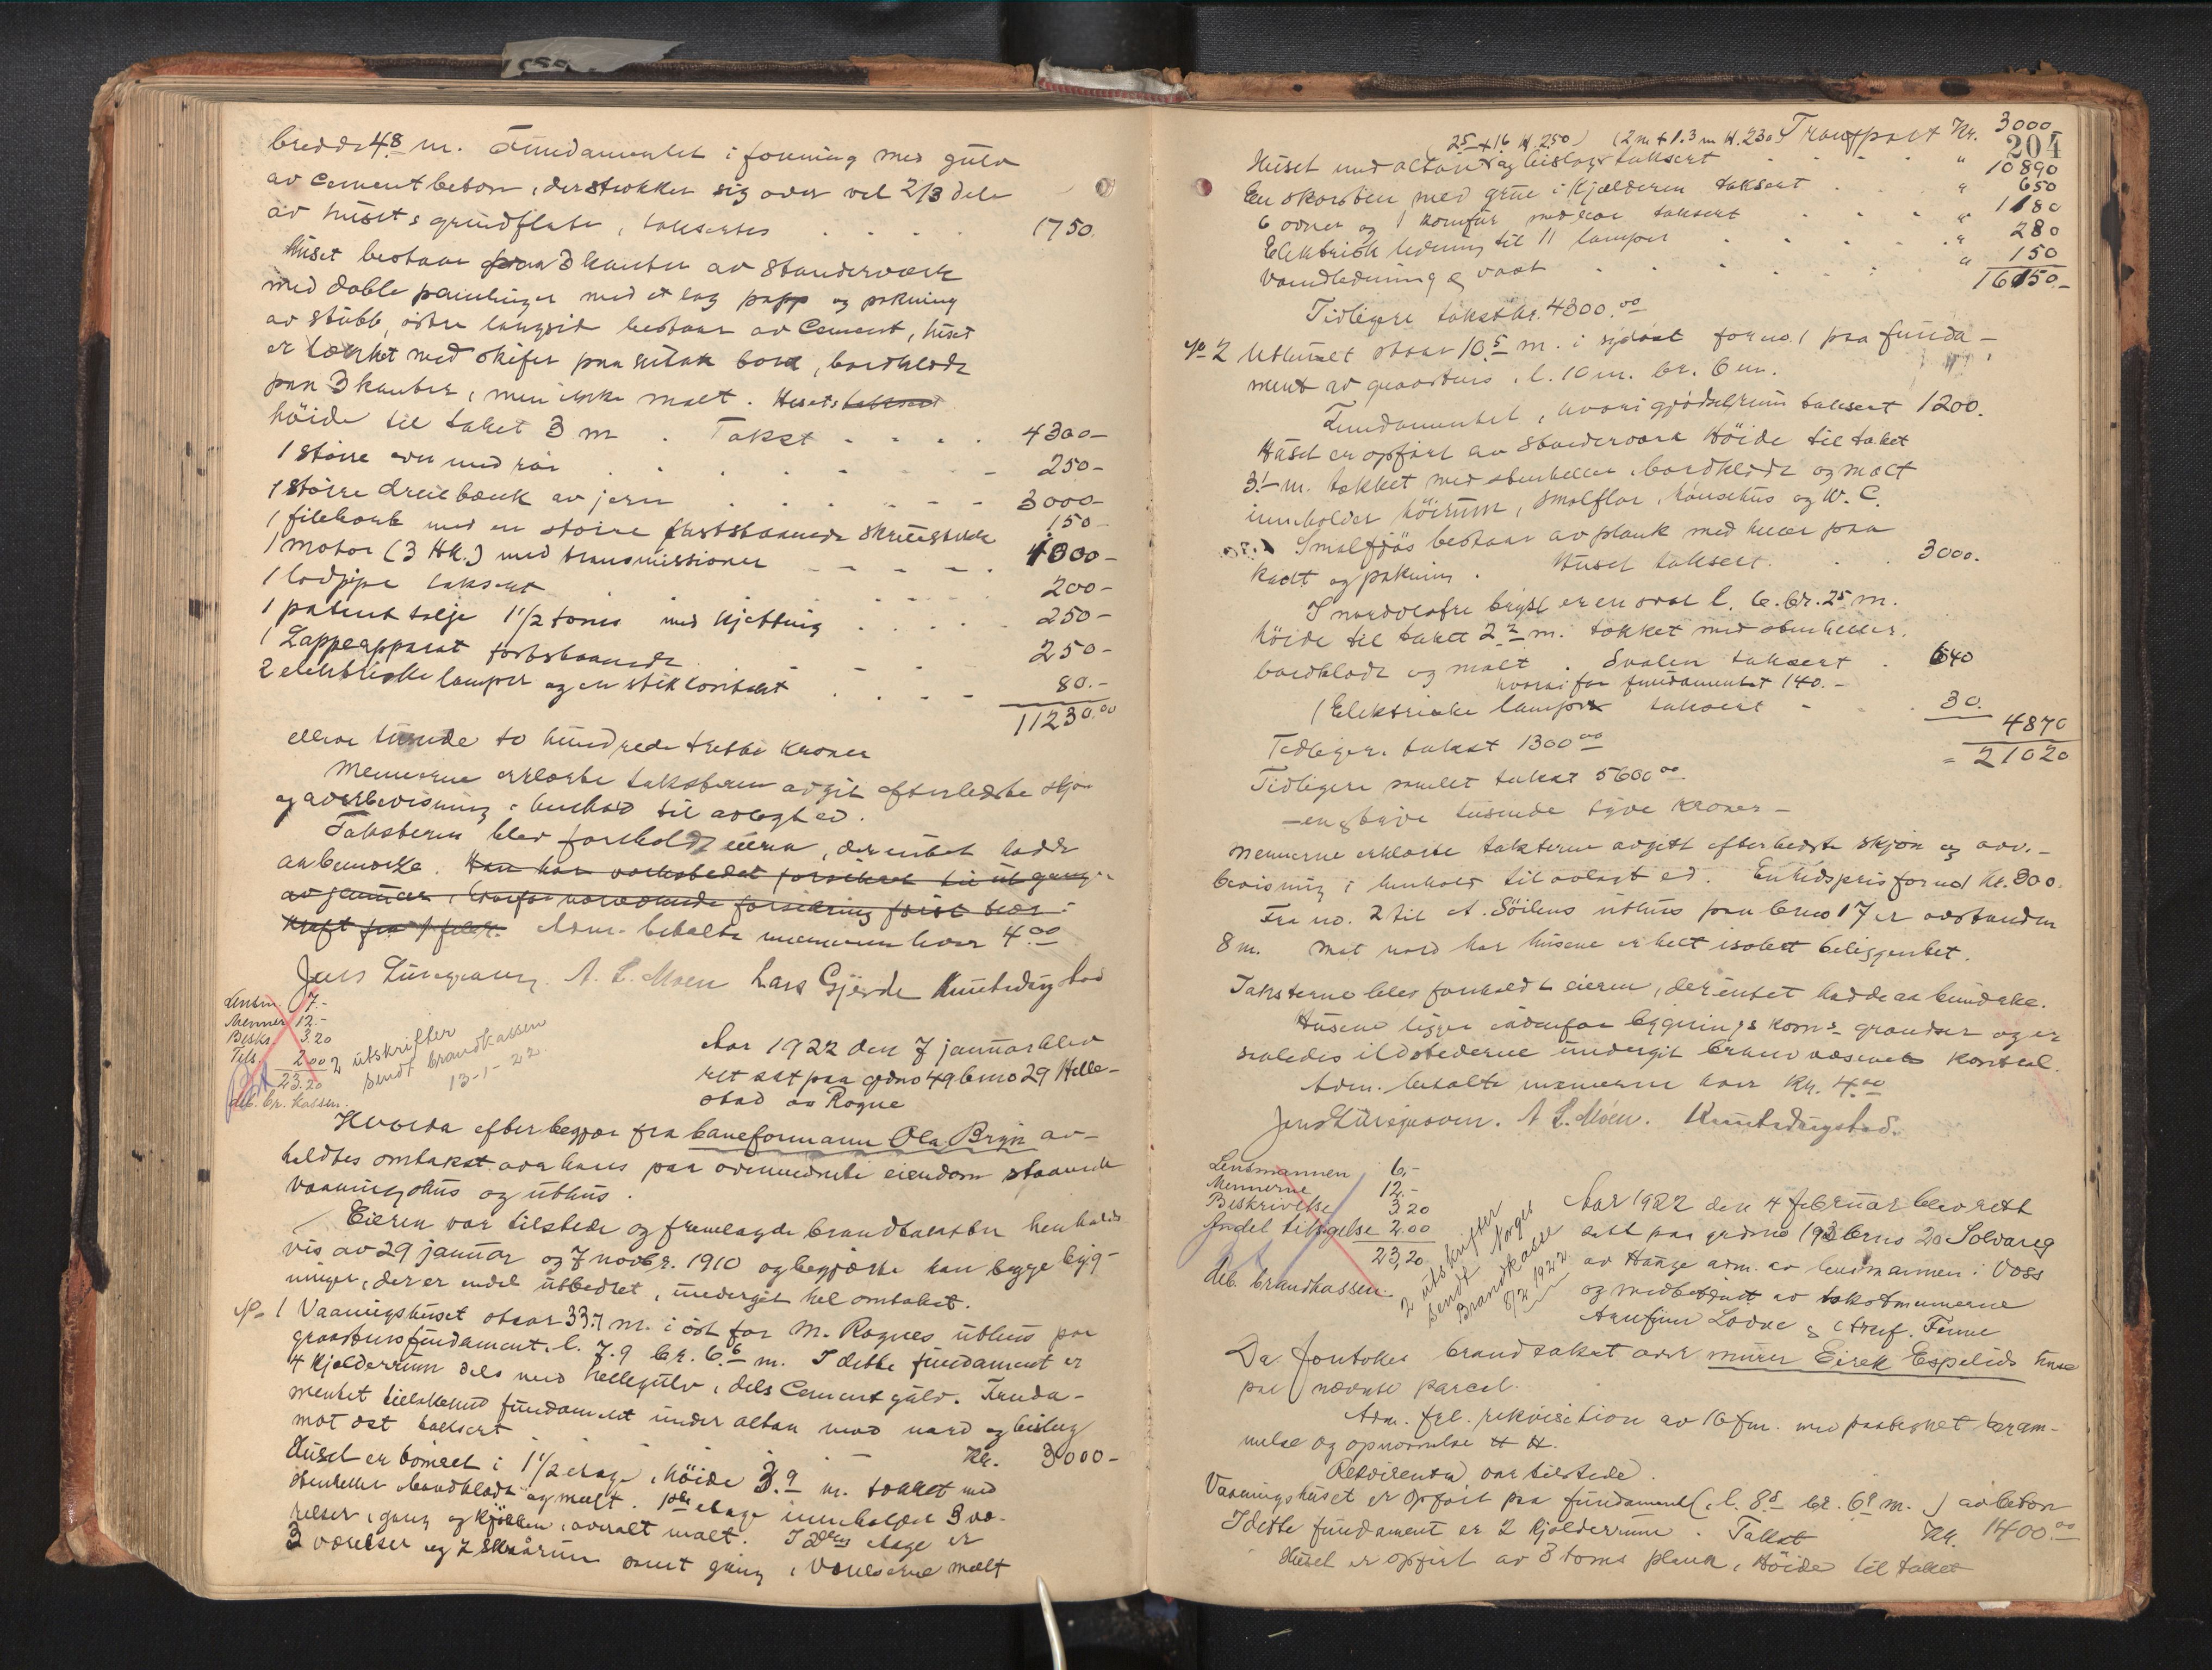 bredde 4.8 m. Fundamentet i forening med gulv
av cementbeton, der strekker sig over vel 2/3 dele
av husets grundflate, takseres . . . . 1750
Huset bestaar paa 3 kanter av Standerverk
med doble panelinger med et lag papp og pakning
av stubb, østre langside bestaar av Cement, huset
er tækket med skifer paa sutak bord, bordklædt
paa 3 kanter, men ikke malt. Husets taksert
høide til taket 3 m . Takst . . . . 4300-
1 større ovn med rør . . . . . . 250-
1 større dreiebænk av jern . . . . 3000-
1 filebænk med en større fastst​aaende skruestikke 150-
1 motor (3 Hk.) med transmissioner 1000-
1 lodpipe taksert 200-
1 patent talje 1 1/2 tons med kjetting . . . . 250-
1 Zappeapparat fastst​aaende . . . 250-
2 elektriske lamper og en stikkontakt . . . . 80.-
11230.00
elleve tusinde to hundrede tretti kroner
Mennerne erklærte taksterne avgit efter bedste skjøn
og overbevisning i henhold til avlagt ed.
Taksterne blev forholdt eieren, der intet hadde
at bemerke. Han har verkstedet forsikret til utgang
av januar, hvorfor nærværende forsikring først trær i
kraft fra 1 febr. Adm. betalte mennerne hver 4.00
Jens Lurgjerason, A. L. Moen Lars Gjerde Knut Dugstad
Lensm. 7.-
Menner 12.-
Beskr. 3.20
Tils. 2.00
23.20
deb. br. kassen.
2 utskrifter
sendt brandkassen
13-1-22.
Aar 1922 den 7 januar blev
ret sat paa gdno 49 brno 29 Helle-
stad av Rogne
Hvorda efter begjær fra baneformann Ola Bryn av-
holdtes omtakst over hans paa ovennævnte eiendom staaende
vaaningshus og uthus.
Eieren var tilstede og fremlagde brandtakster henholds
vis av 29 januar og 7 novbr. 1910 og begjærte han begge byg-
ninger, der er endel utbedret, undergit hel omtakst.
No 1 Vaaningshuset staar 33.7 m. i øst for M. Rognes uthus paa
graastensfundament. l. 7.9 br. 6.6 m. I dette fundament er
4 kjælderrum dels med hellegulv, dels Cementgulv. Funda-
mentet tillikemed fundamentet under altan mod nord og bislag
mot øst taksert Kr. 3000-
Huset er tømret i 1 1/2 etage, høide 3.9 m. tækket med
stenheller bordklædt og malt. 1ste etage inneholder 3 væ-
relser, gang og kjøkken, overalt malt. I 2den etage er
3 værelser og 2 skraarum samt gang, Værelserne malt
204
(2.5 + 1.6 H. 2.50) (2 m + 1.3 m H. 2.30) Transport Kr. 3000
Huset med altan og bislag taksert . . . . " 10890
En skorsten med grue i kjælderen taksert . . . " 650
6 ovner og 1 komfur med rør taksert . . . " 1180
Elektrisk ledning til 11 lamper . . . . " 280
Vandledning & vask . . . . . " 150
16150.-
Tidligere takst kr. 4300.00
No 2 Uthuset staar 10.5 m. i sydøst for no. 1 paa funda-
ment av graasten. l. 10 m. br. 6 m.
Fundamentet, hvori gjødselrum taksert 1200.
Huset er opført av standerverk Høide til taket
3.1 m. tækket med stenheller, bordklædt og malt
inneholder høirum, smalflor, hønsehus og W.C.
Smalfjøs bestaar av plank med huer paa
kant og pakning. Huset taksert . . 3000.
I nordvestre bryst er en sval l. 6. br. 2.5 m.
høide til taket 2.2 m. tækket med stenheller.
bordklædt og malt . Svalen taksert . 640
hvorav for fundamentet 140.-
1 Elektriske lampe taksert - . . 30.
4870
Tidligere takst 1300.00
= 21020
Tidligere samlet takst 5600.00
- en og tyve tusinde tyve kroner -
Mennerne erklærte taksterne avgitt efter bedste skjøn og over-
bevisning i henhold til avlagt ed. Enhedspris for no 1 Kr. 300.
Fra no. 2 til A. Söilens uthus paa brno 17 er avstanden
8 m. Mot nord har husene en helt isolert beliggenhet.
Taksterne blev forholdt eieren, der intet hadde at bemerke.
Husene ligger indenfor bygnings komm. grændser og er
saaledes ildstederne undergit brandvæsenets kontrol.
Adm. betalte mennerne hver Kr. 4.00
Jens Lurgjerason. A. L. Moen. Knut Dugstad.
Lensmannen 6,-
Mennerne 12.-
Beskrivelse 3 20
Andel tilsigelse 2.00
23,20
deb. brandkassen.
2 utskrifter
sendt Norges
Brandkasse
8/2 1922
Aar 1922 den 4 februar blev rett
satt paa gardno 193 brno 20 Solvang
av Hauge adm. av lensmannen i Voss
og medbetjent av takstmennerne
Arnfinn Lødve & Arnf. Finne
Da foretokes brandtakst over murer Eirek Espelids huse
paa nævnte parcel.
Adm. frl. rekvisition av 16 f.m. med paategnet beram-
melse og opnævnelse H H.
Rekvirenten var tilstede.
Vaaningshuset er opført paa fundament (l. 8.5 br. 6.9 m.) av beton
I dette fundament er 2 kjælderrum . Takst Kr. 1400.00
Huset er opført av 3 toms plank, Høide til taket